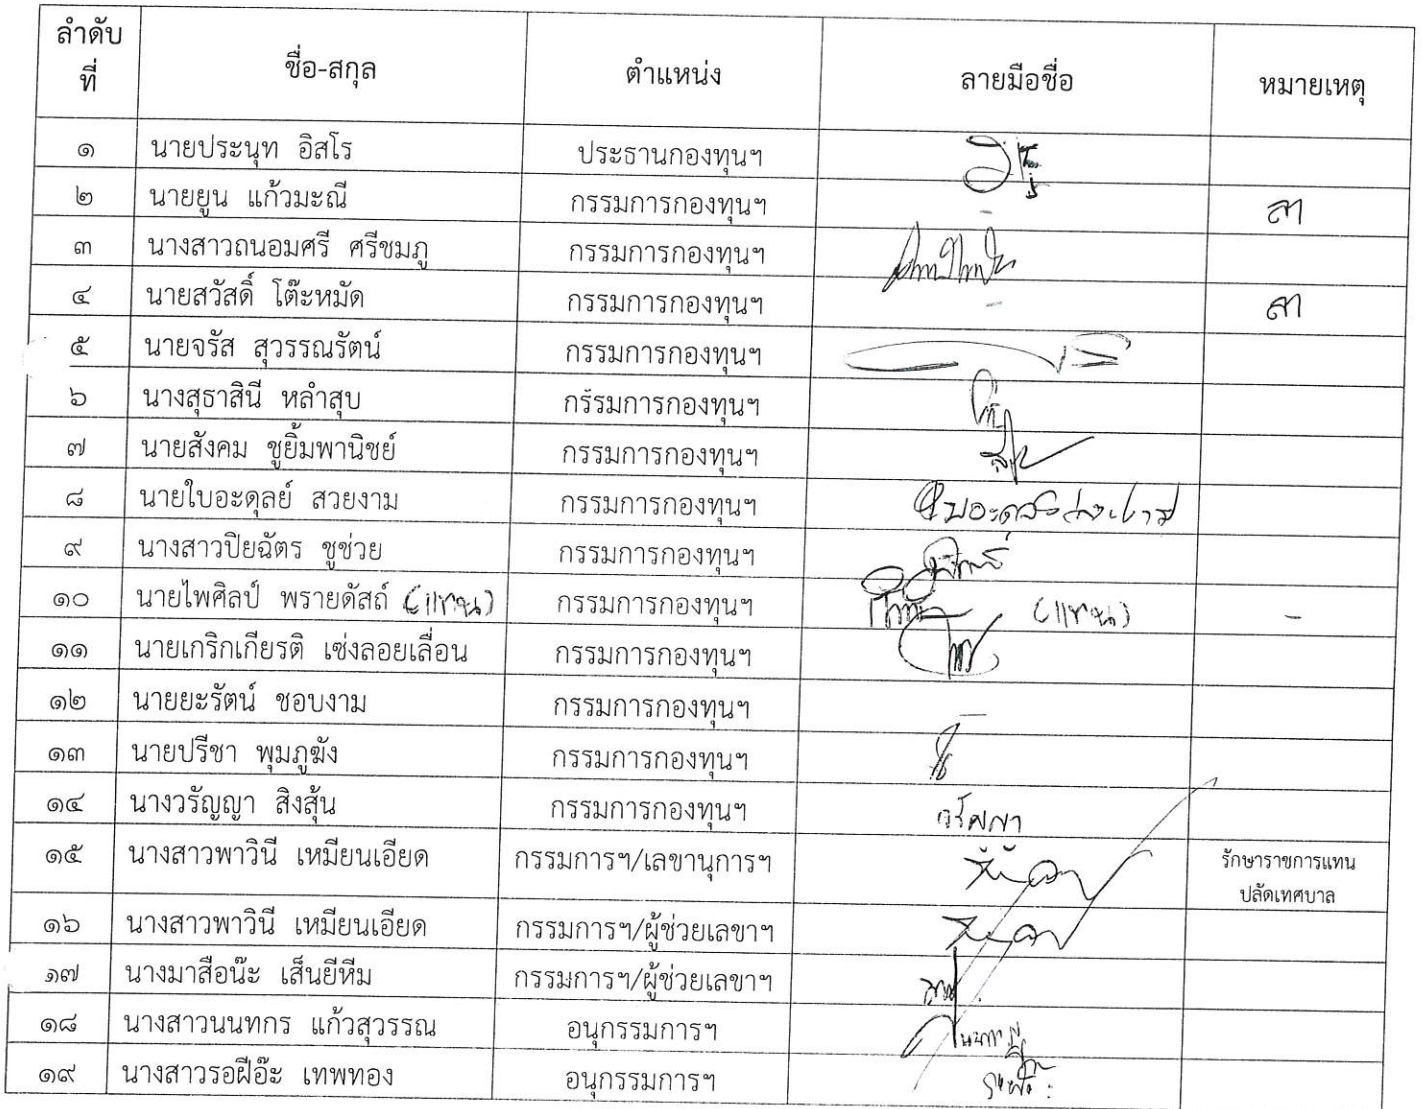 ลำดับที่ ชื่อ-สกุล ตำแหน่ง ลายมือชื่อ หมายเหตุ
๑ นายประนุท อิสโร ประธานกองทุนฯ
๒ นายยูน แก้วมะณี กรรมการกองทุนฯ - ลา
๓ นางสาวถนอมศรี ศรีชมภู กรรมการกองทุนฯ
๔ นายสวัสดิ์ โต๊ะหมัด กรรมการกองทุนฯ - ลา
๕ นายจรัส สุวรรณรัตน์ กรรมการกองทุนฯ
๖ นางสุธาสินี หลำสุบ กรรมการกองทุนฯ
๗ นายสังคม ชูยิ้มพานิชย์ กรรมการกองทุนฯ
๘ นายใบอะดุลย์ สวยงาม กรรมการกองทุนฯ
๙ นางสาวปิยฉัตร ชูช่วย กรรมการกองทุนฯ
๑๐ นายไพศิลป์ พรายดัสถ์ (แทน) กรรมการกองทุนฯ (แทน) -
๑๑ นายเกริกเกียรติ เซ่งลอยเลื่อน กรรมการกองทุนฯ
๑๒ นายยะรัตน์ ชอบงาม กรรมการกองทุนฯ -
๑๓ นายปรีชา พุมภูฆัง กรรมการกองทุนฯ
๑๔ นางวรัญญา สิงสุ้น กรรมการกองทุนฯ วรัญญา
๑๕ นางสาวพาวินี เหมียนเอียด กรรมการฯ/เลขานุการฯ รักษาราชการแทน
ปลัดเทศบาล
๑๖ นางสาวพาวินี เหมียนเอียด กรรมการฯ/ผู้ช่วยเลขาฯ
๑๗ นางมาสือน๊ะ เส็นยีหีม กรรมการฯ/ผู้ช่วยเลขาฯ
๑๘ นางสาวนนทกร แก้วสุวรรณ อนุกรรมการฯ
๑๙ นางสาวรอฝีอ๊ะ เทพทอง อนุกรรมการฯ